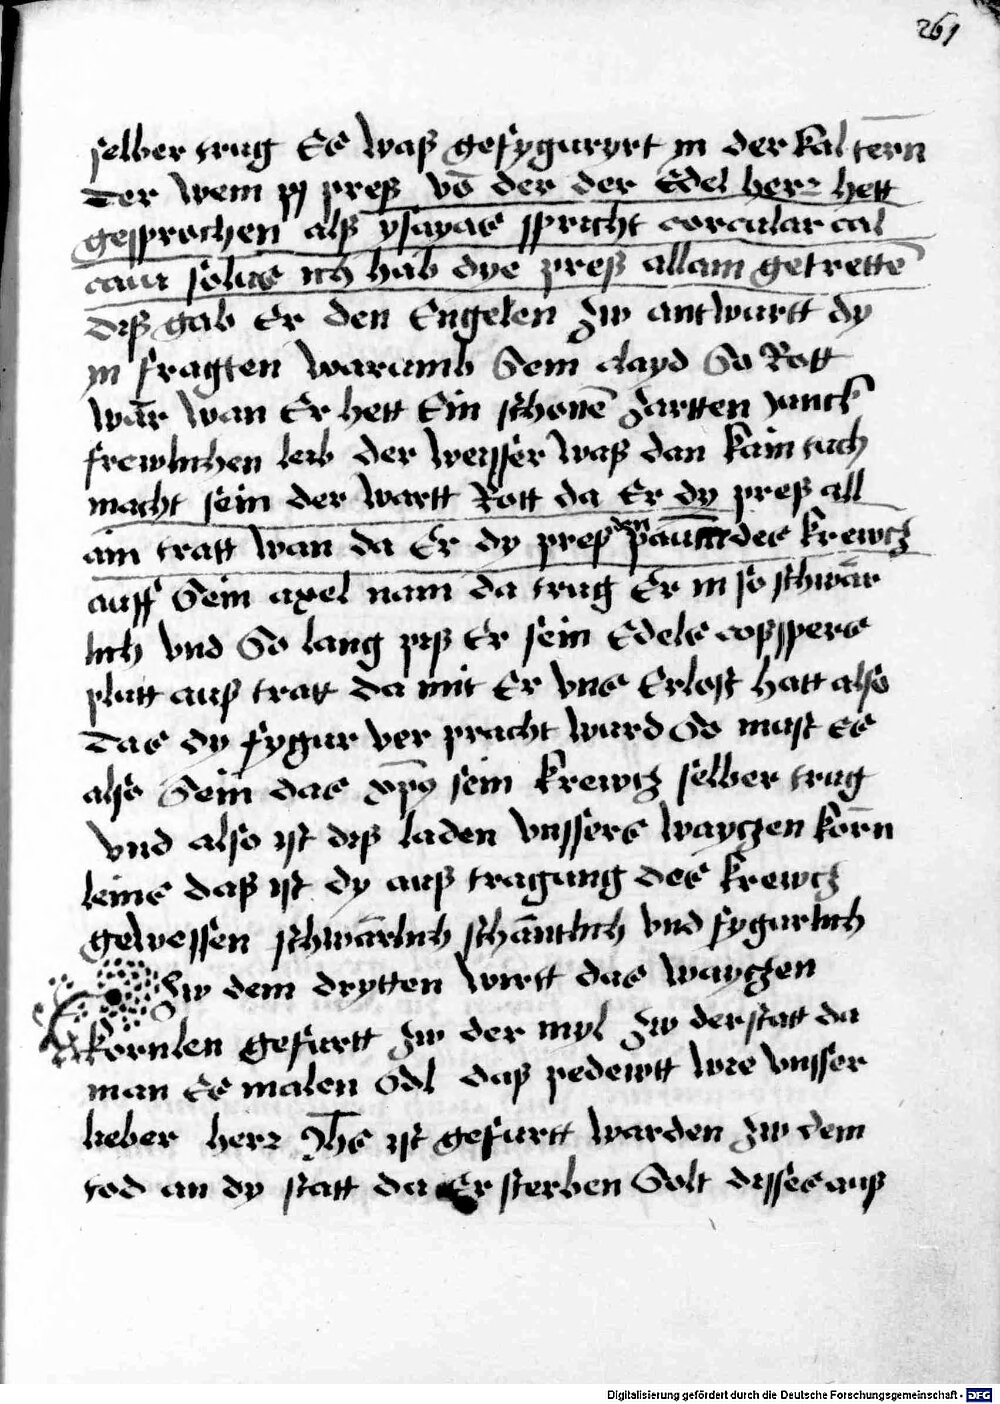 261
selber trug Es waß gefyguryrt jn der kal tern̄
Der wein pj preß võ der der Edel herr hett
gesprochen alß ysayas spricht torcular cal
caui solus ich hab dye preß allain getrettẽ
diß gab Er den Engelen zw antwurtt dy
jn fragten warumb Sein clayd So Rott
wār wan Er hett Ein schonē zartten junck
frewlichen leib der weysser waß dan kain tuch
macht sein der wartt Rott da Er dy preß all
ain tratt wan da Er dy preß den paūm des krewtz
auff Sein axel nam da trug Er in so schwār
lich vnd So lang piß Er sein Edels coßspers
plutt auß tratt da mit Er vns Erlost hatt also
Das dy fygur ver pracht wurd So must Es
also Sein das xp̄s sein krewtz selber trug
vnd also ist diß laden vnssers waytzen korn̄
leins daß ist dy auß tragung des krewtz
gewessen schwārlich schāntlich vnd fygurlich
Zw dem drytten wirtt das waytzen
kornlen gefurtt zw der myl zw der statt da
man Es malen Sol daß pedewtt wie vnsser
lieber herr Jh̄s ist gefurtt warden zw dem
tod an dy statt da Er sterben Solt disses auß
Digitalisierung gefördert durch die Deutsche Forschungsgemeinschaft - DFG